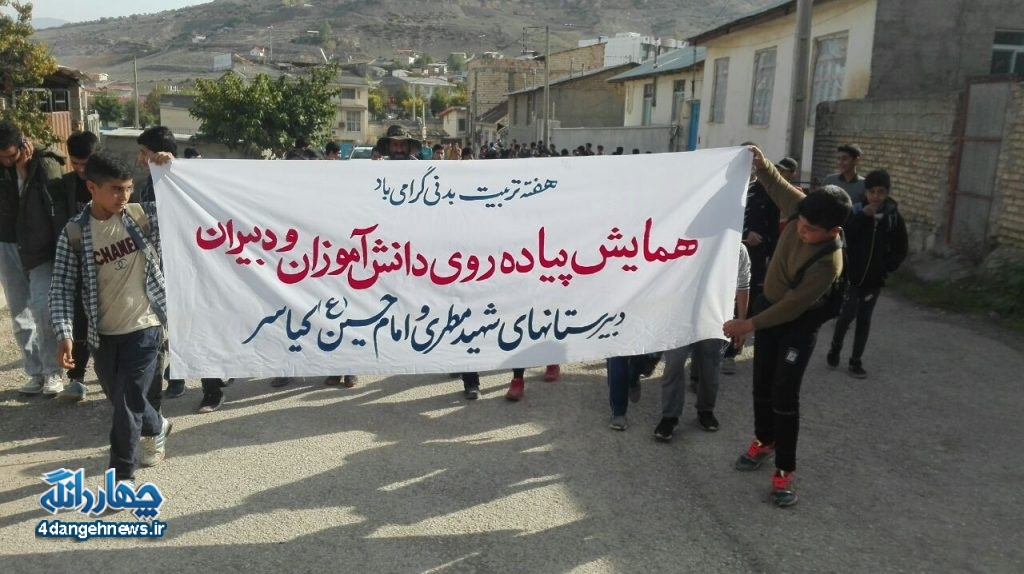 هفته تربیت بدنی گرامی باد
همایش پیاده روی دانش آموزان و دبیران
دبیرستانهای شهید مطهری و امام حسین (ع) کیاسر
CHANEL
چهاردانگه
4dangehnews.ir